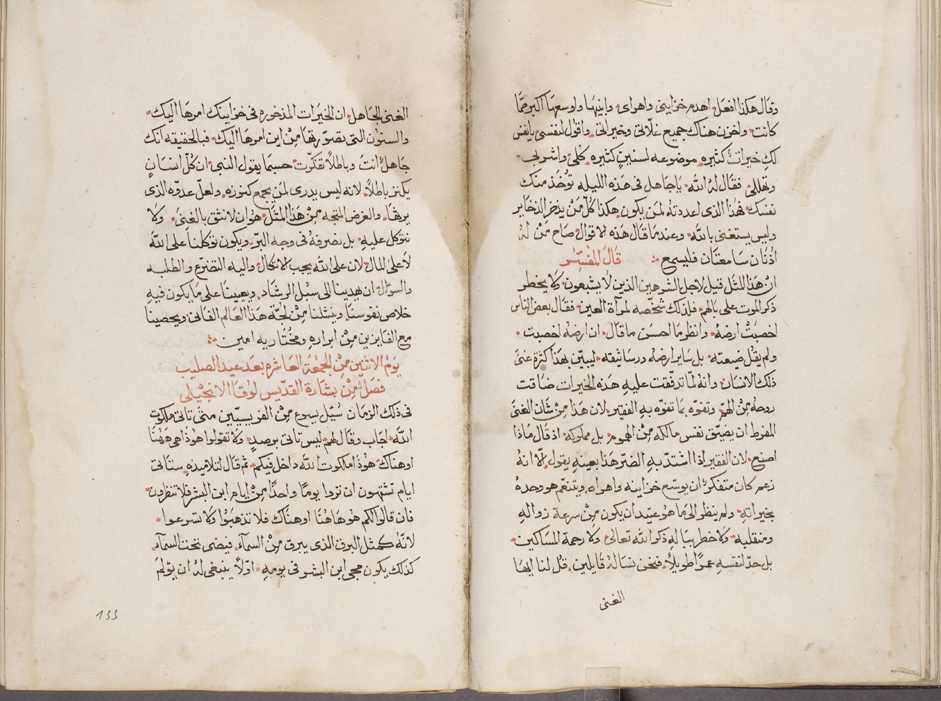 وقال هكذا افعل اهدم خزايني واهواي وابنيها واوسعها اكبر مما
كانت واخزن هناك جميع غلاتي وخيراتي واقول لنفسي يا نفس
لك خيرات كثيره موضوعه لسنين كثيره كلي واشربي
وتهللي فقال له الله يا جاهل في هذه الليله تؤخذ منك
نفسك فهذا الذي اعددته لمن يكون هكذا كل من يدخر الدخاير
وليس يستغني بالله وعندما قال هذه الاقوال صاح من له
اذنان سامعتان فليسمع قال المفسر
ان هذا المثل قيل لاجل الشرهين الذين لا يشبعون ولا يخطر
ذكر الموت على بالهم فلذلك شخصه لمرآة العين فقال بعض الناس
اخصبت ارضه وانظر ما احسن ما قال ان ارضه اخصبت
ولم يقل ضيعته بل ساير ارضه ورساتيقه ليبين بهذا كثرة غنى
ذلك الانسان وانه لما تدفقت عليه هذه الخيرات ضاقت
روحه من الهم وتفوه بما تفوه به الفقير لان هذا من شان الغنى
المفرط ان يضيق نفس مالكه من الهموم بل مملوكه اذ قال ماذا
اصنع لان الفقير اذا اشتد به الضر هذا بعينه يقول الا انه
زعم كان متفكرا ان يوسع خزاينه واهراه ويتنعم هو وحده
بخيراته ولم ينظر الى ما هو عتيد ان يكون من سرعة زواله
ومنقلبه ولا خطر بباله ذكر الله تعالى ولا رحمة المساكين
بل حد لنفسه عمرا طويلا فنحن نساله قايلين قل لنا ايها
الغني
الغني الجاهل ان الخيرات المذخوره في خزاينك امرها اليك
والسنون التي تصورتها من اين امرها اليك فبالحقيقه انك
جاهل انت وباطلا تفكرت حسبما يقول النبي ان كل انسان
يكنز باطلا لانه ليس يدري لمن يجمع كنوزه ولعل عدوه الذي
يرثها والغرض المتجه من هذا المثل هو ان لا نثق بالغنى ولا
نتوكل عليه بل نصرفه في وجه البر ويكون توكلنا على الله
لا على المال لان على الله يجب الاتكال واليه التضرع والطلبه
والسؤال ان يهدينا الى سبل الرشاد ويعيننا على ما يكون فيه
خلاص نفوسنا وينشلنا من لجة هذا العالم الفاني ويحصينا
مع الفايزين من ابراره ومختاريه امين
يوم الاثنين من الجمعة العاشره بعد عيد الصليب
فصل من بشارة القديس لوقا الانجيلي
في ذلك الزمان سئل يسوع من الفريسيين متى تاتي ملكوت
الله فاجاب وقال لهم ليس تاتي برصد ولا تقولوا هوذا هي ههنا
او هناك هوذا ملكوت الله داخل فيكم ثم قال لتلاميذه ستاتي
ايام تشتهون ان تروا يوما واحدا من ايام ابن البشر فلا تنظرون
فان قالوا لكم هوها هنا او هناك فلا تذهبوا ولا تسرعوا
لانه كمثل البرق الذي يبرق من السماء فيضي تحت السماء
كذلك يكون مجي ابن البشر في يومه اولا ينبغي له ان يؤلم
١٣٣